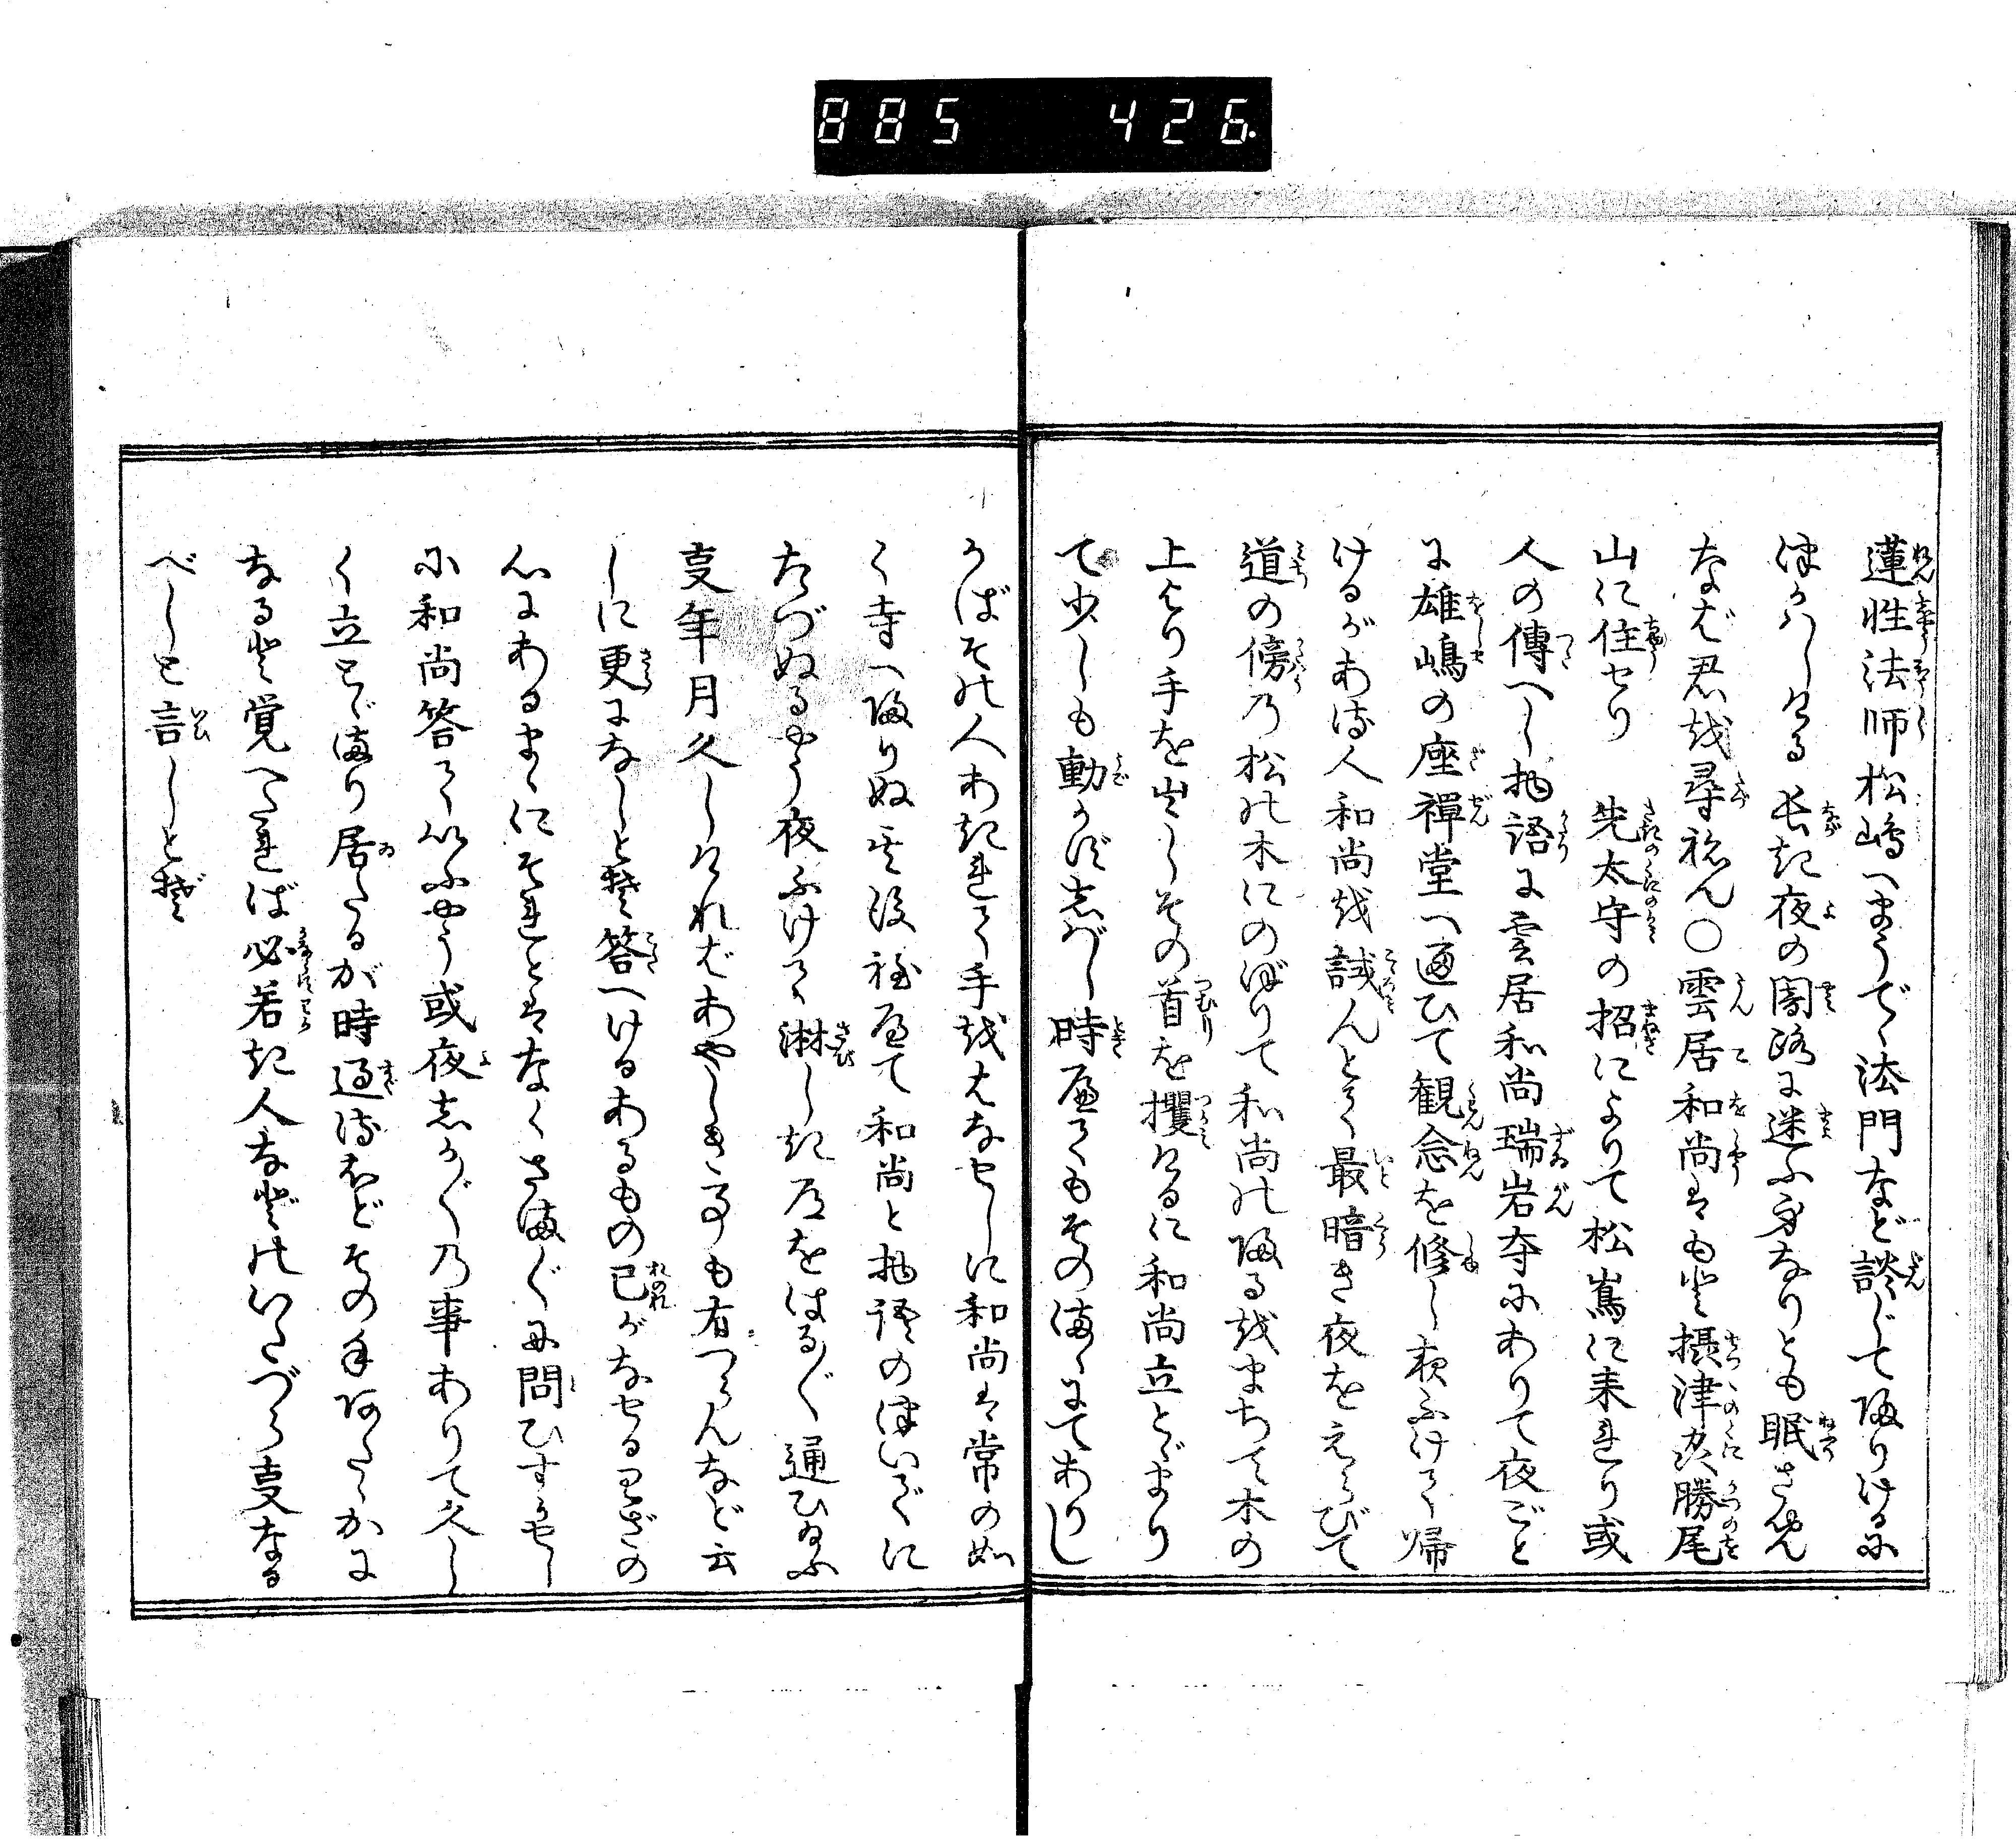 885 426
蓮性法師松嶋へまうでゝ法門など談じて帰りけるに
つかはしける 長き夜の闇路に迷ふ身なりとも眠さめ
なば君を尋ねん〇雲居和尚はもと摂津国勝尾
山に住せり 先太守の招によりて松嶌に来れり或
人の傳へし物語に雲居和尚瑞岩寺にありて夜ごと
に雄嶋の座禪堂へ通ひて観念を修し夜ふけて帰
けるがある人和尚を試んとて最暗き夜をえらびて
道の傍の松の木にのぼりて和尚の帰るをまちて木の
上より手を出しその首を攫けるに和尚立とゞまり
て少しも動かずしばし時歴てもそのまゝにてありし
かばその人あきれて手をはなせしに和尚は常の如
く寺へ帰りぬ其後程歴て和尚と物語のつ
いでに
たづぬるやう夜ふけて淋しき道をはる〴〵通ひ給ふ
事年月久しければあやしき事も有つらんなど云
しに更になしとぞ答へけるあるもの己がなせるわざの
心にあるまゝにそれとはなくさま〴〵に問ひすかせし
に和尚答ていふやう或夜しか〴〵の事ありて久し
く立とゞまり居たるが時過るほどその手あたゝかに
なると覚へたれば必若き人などのいたづら事なる
べしと言しとぞ